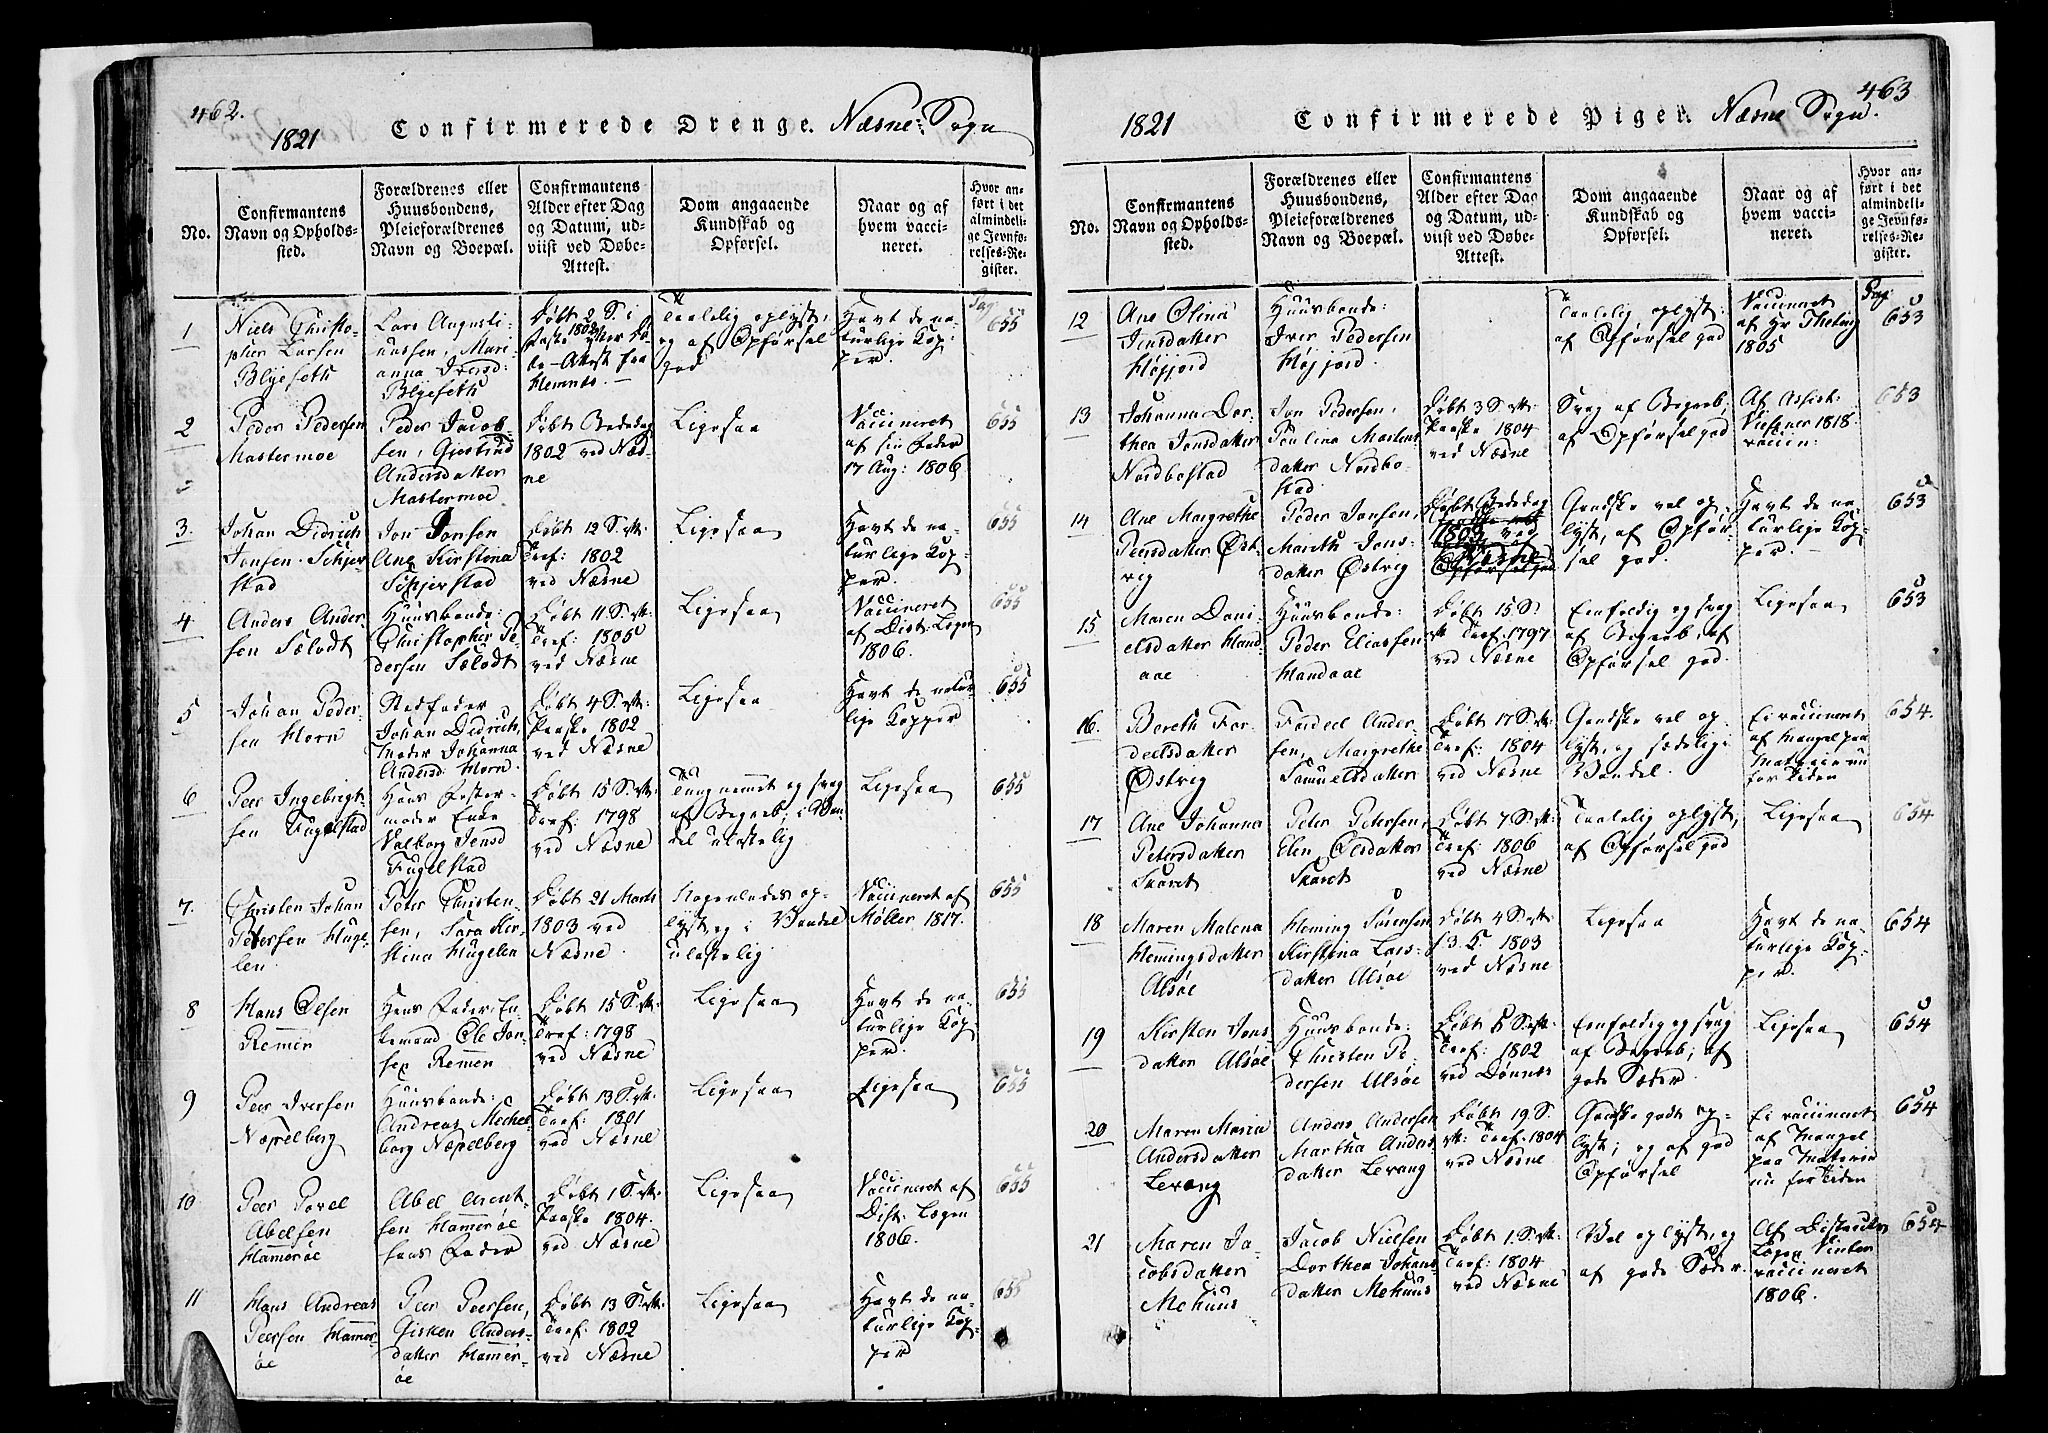 462.
1821 Confirmerede Drenge. Næsne Sogn
No.
Confirmantens
Navn og Opholds-
sted.
Forældrenes eller
Huusbondens,
Pleieforældrenes
Navn og Boepæl.
Confirmantens
Alder efter Dag
og Datum, ud-
viist ved Døbe-
Attest.
Dom angaaende
Kundskab og
Opførsel.
Naar og af
hvem vacci-
neret.
Hvor an-
ført i det
almindeli-
ge Jevnfø-
relses-Re-
gister.
Pag:
1
Niels Christo-
pher Larsen
Blyeseth
Lars Augusti-
nussen, Mari-
anna Iversd:
Blyeseth
Døbt 2 S. i
Paaske 1802 efter Dø-
be-Attest fra
Hemnes.
Taalelig oplyst,
og af Opførsel
god
Havt de na-
turlige Kop-
per.
655
2
Peder Pedersen
Mastermoe
Peder Jacob-
sen, Gjertrud
Andersdatter
Mastermoe
Døbt Bededag
1802 ved Næs-
ne
Ligesaa
Vaccineret
af sin Fader
17 Aug: 1806
655
3.
Johan Didrich
Jonsen Schjer-
stad
Jon Jonsen
Ane Kirstena
Schjerstad
Døbt 12 S. eft:
Tref: 1802
ved Næsne
Ligesaa
Havt de na-
turlige Kop-
per.
655
4
Anders Ander-
sen Sælodt
Huusbonde:
Christopher Pe-
dersen Sælodt
Døbt 11 S. eft:
Tref: 1805
ved Næsne
Ligesaa
Vaccineret
af Dist: Lægen
1806.
655
5
Johan Peder-
sen Horn
Stedfader
Johan Didrich,
Moder Johanna
Andersd: Horn.
Døbt 4 S. eft:
Paaske 1802
ved Næsne
Ligesaa
Havt de natur-
lige Kopper
655
6
Peer Ingebrigt-
sen Fugelstad
Hans Foster-
moder Enke
Valborg Jensd
Fugelstad
Døbt 15 S. eft:
Tref: 1798
ved Næsne
Tungnemmet og svag
af Begreb; i Van-
del ulastelig
Ligesaa
655
7.
Christen Johan
Petersen Huge-
len
Peter Christen-
sen, Sara Kir-
stina Hugelen
Døbt 21 Marts
1803 ved
Næsne
Nogenledes op-
lyst, og i Vandel
ulastelig
Vaccineret af
Møller 1817.
655
8
Hans Olsen
Remmen
Hans Fader, En-
kemand Ole Jon-
sen Remmen
Døbt 15 S. eft:
Tref: 1798
ved Næsne
Ligesaa
Havt de na-
turlige Kop-
per.
655
9
Peer Iversen
Næpelberg
Huusbonde:
Andreas Mechel-
borg Næpelberg
Døbt 13 S. eft:
Tref: 1801
ved Næsne
Ligesaa
Ligesaa
655
10
Peer Povel
Abelsen
Hamerøe
Abel Arent-
sen Hamerøe
hans Fader
Døbt 1 S. eft:
Paaske 1804.
ved Næsne
Ligesaa
Vaccineret af
Dist: Lægen
1806.
655
11
Hans Andreas
Peersen Hamer-
øe
Peer Peersen,
Gisken Anders-
datter Hamer-
øe
Døbt 13 S. eft:
Tref: 1802
ved Næsne
Ligesaa
Havt de na-
turlige Kop-
per
655
463
1821 Confirmerede Piger. Næsne Sogn.
No.
Confirmantens
Navn og Opholds-
sted.
Forældrenes eller
Huusbondens,
Pleieforældrenes
Navn og Boepæl.
Confirmantens
Alder efter Dag
og Datum, ud-
viist ved Døbe-
Attest.
Dom angaaende
Kundskab og
Opførsel.
Naar og af
hvem vacci-
neret.
Hvor an-
ført i det
almindeli-
ge Jevnfø-
relses-Re-
gister.
Pag:
12
Ane Olina
Jensdatter
Højjord
Huusbonde:
Iver Pedersen
Højjord.
Taalelig oplyst
af Opførsel god
Vaccineret
af Hr Theting
1805
653
13
Johanna Dor-
thea Jonsdatter
Nordbostad
Jon Pedersen,
Paulina Martens
datter Nordbo-
stad
Døbt 3 S. eft:
Paaske 1804
ved Næsne
Svag af Begreb,
af Opførsel god
Af Assist:
1818
vaccin:
653
14
Ane Margrethe
Pedersdatter Øst-
vig
Peder Jonsen,
Mareth Jons-
datter Østvig
Døbt Bededag
1803 ved
Næsne
Gandske vel op-
lyst, af Opfør-
sel god.
Havt de na-
turlige Kop-
per.
653
15
Maren Dani-
elsdatter Hand-
aae
Huusbonde:
Peder Eliassen
Handaae
Døbt 15 S.
eft Tref: 1797
ved Næsne
Eenfoldig og svag
af Begreb, af
Opførsel god.
Ligesaa
653
16.
Bereth For-
deelsdatter
Østvig
Fordeel Ander-
sen, Margrethe
Samuelsdatter
Døbt 17 S. eft:
Tref: 1804
ved Næsne
Gandske vel op-
lyst, og sædelig i
Vandel.
Ei vaccineret
af Mangel paa
Materie nu
for Tiden
654.
17
Ane Johanna
Petersdatter
Skaret
Peter Petersen,
Elen Olsdatter
Skaret
Døbt 7 S. eft:
Tref: 1806
ved Næsne
Taalelig oplyst,
af Opførsel god
Ligesaa
654
18
Maren Malena
Hemingsdatter
Alsøe
Heming Sørensen
Kirstina Lars-
datter Alsøe
Døbt 4 S. eft:
H. 3 K. 1803
ved Næsne
Ligesaa
Havt de na-
turlige Kop-
per.
654
19
Kirsten Jons
datter Alsøe
Huusbonde:
Christen Pe-
dersen Alsøe
Døbt 5 S. eft:
Tref: 1802
ved Dønnæs
Eenfoldig og svag
af Begreb, af
gode Sæder.
Ligesaa
654
20
Maren Maria
Andersdatter
Levang
Anders Andersen
Martha Anders
datter Levang
Døbt 19 S.
eft: Tref: 1804
ved Næsne
Ganske godt op-
lyst; og af god
Opførsel
Ei vaccineret
af Mangel
paa Materie
nu for Tiden
654
21
Maren Ja-
cobsdatter
Mehuus
Jacob Nielsen
Dorthea Johans-
datter Mehuus
Døbt 1. S. eft:
Tref: 1804
ved Næsne
Vel oplyst, og
af gode Sæder.
Af Districts
Lægen Winter
vaccineret
1806.
654